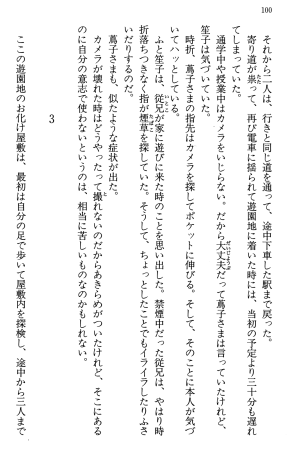 100
それから二人は、行きと同じ道を通って、途中下車した駅まで戻った。
寄り道が祟って、再び電車に揺られて遊園地に着いた時には、当初の予定より三十分も遅れ
てしまっていた。
通学中や授業中はカメラをいじらない。だから大丈夫だって蔦子さまは言っていたけれど、
笙子は気づいていた。
時折、蔦子さまの指先はカメラを探してポケットに伸びる。そして、そのことに本人が気づ
いてハッとしている。
ふと笙子は、従兄が家に遊びに来た時のことを思い出した。禁煙中だった従兄は、やはり時
折落ちつきなく指が煙草を探していた。そうして、ちょっとしたことでもイライラしたりふさ
いだりするのだ。
蔦子さまも、似たような症状が出た。
カメラが壊れた時はどうやったって撮れないのだからあきらめがついたけれど、そこにある
のに自分の意志で使わないというのは、相当に苦しいものなのかもしれない。
3
ここの遊園地のお化け屋敷は、最初は自分の足で歩いて屋敷内を探検し、途中から三人まで